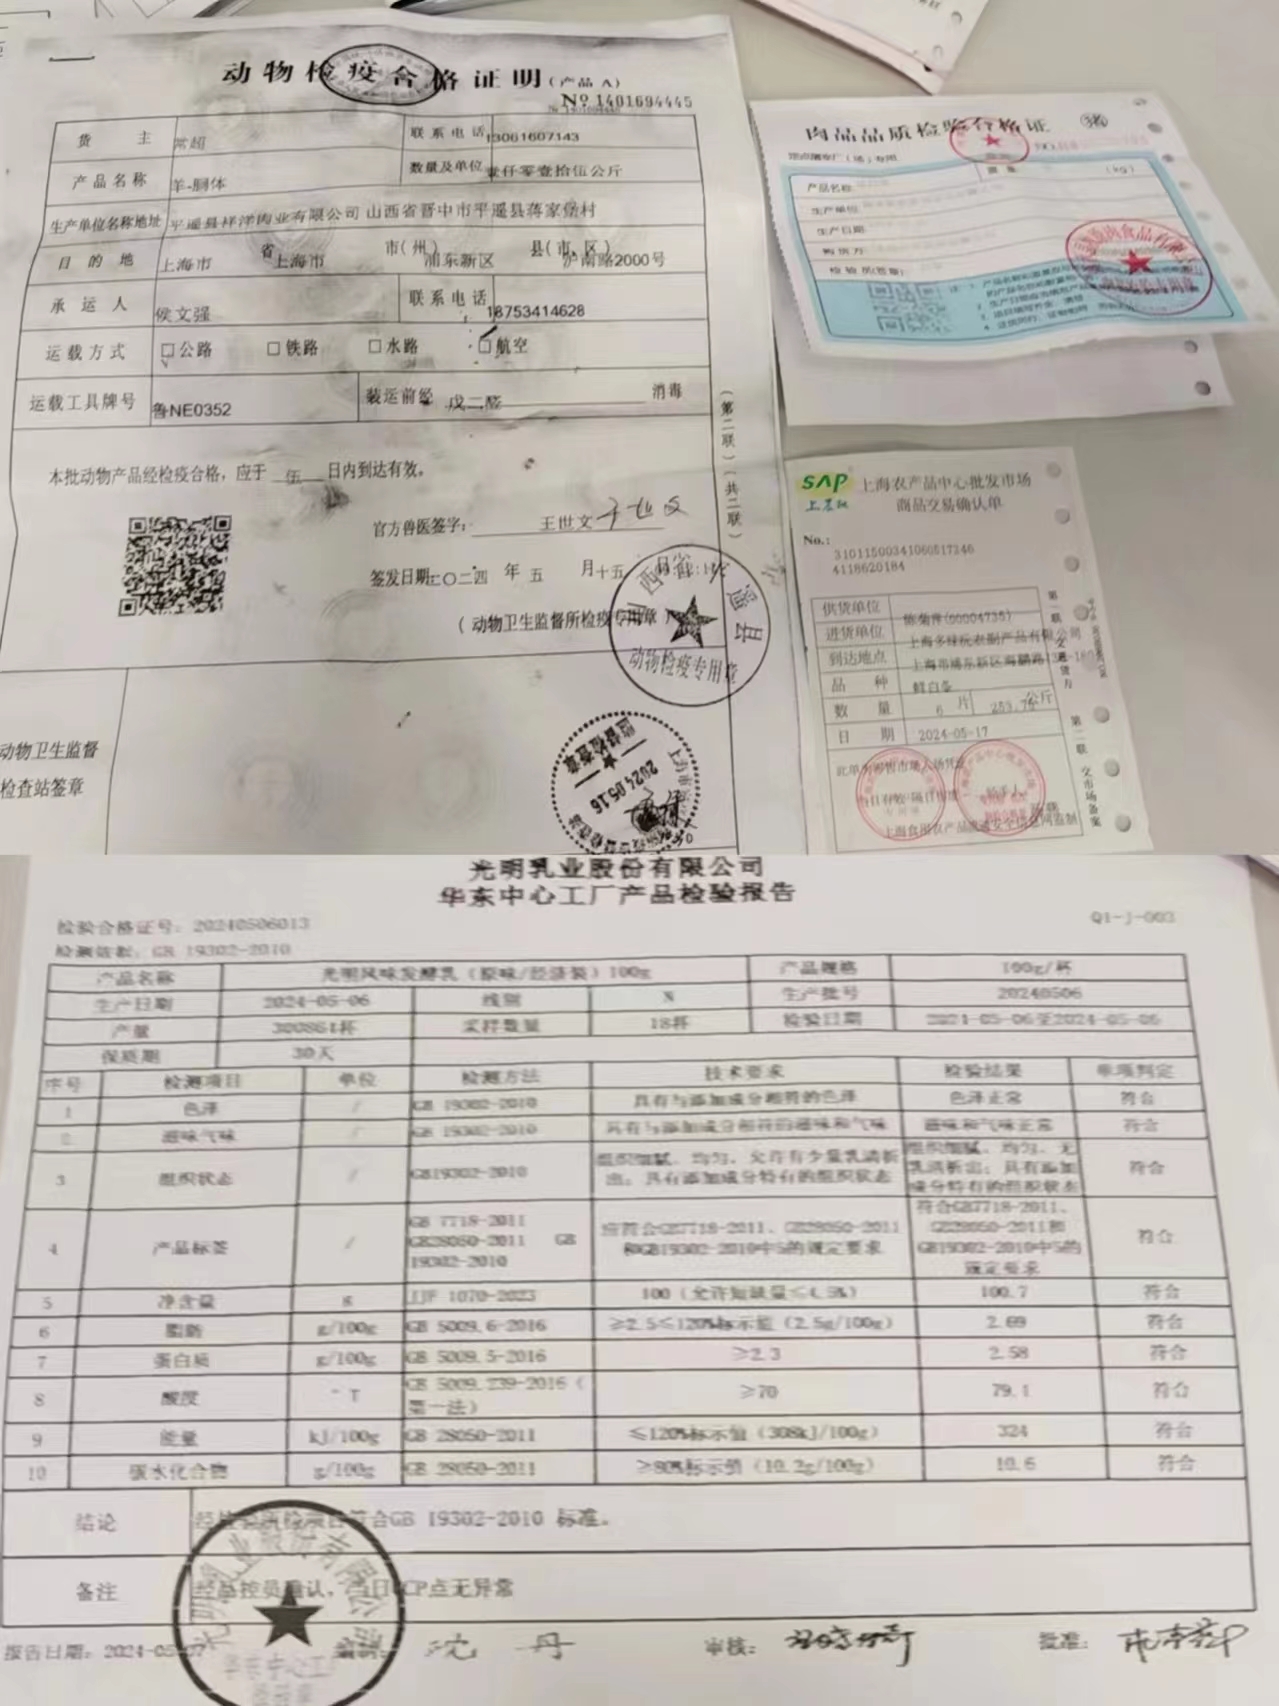 动物检疫合格证明(产品 A)
№ 1401694445
货 主 常超 联系电话 13061607143
产品名称 羊-胴体 数量及单位 壹仟零壹拾伍公斤
生产单位名称地址 平遥县祥洋肉业有限公司 山西省晋中市平遥县蒋家堡村
目的地 上海市 省 上海市 市(州) 浦东新区 县(市、区) 沪南路2000号
承运人 侯文强 联系电话 18753414628
运载方式 □公路 □铁路 □水路 □航空
运载工具牌号 鲁NE0352 装运前经 戊二醛 消毒
本批动物产品经检疫合格，应于 伍 日内到达有效。
官方兽医签字： 王世文
签发日期:二〇二四 年 五 月十五
(动物卫生监督所检疫专用章)
动物检疫专用章
(第二联)(共二联)
动物卫生监督
检查站签章
监督检查章
2024.05.16
肉品品质检验合格证 猪
定点屠宰厂(场)专用
NO.
产品名称 (kg)
生产单位
生产日期
购货方
检验员(签章)
SAP 上海农产品中心批发市场
上农批 商品交易确认单
No.:
31011500341060517246
4118620184
供货单位 陈菊萍(00004735)
进货单位 上海多绿沅农副产品有限公司
到达地点 上海市浦东新区海鹏路
品 种 鲜白条
数 量 6 片 公斤
日 期 2024-05-17
此单为零售市场入场凭证
上海食用农产品流通安全信息网监制
第二联 交市场备案
光明乳业股份有限公司
华东中心工厂产品检验报告
检验合格证号: 20240506013 Q1-J-003
检测依据: GB 19302-2010
产品名称 光明风味发酵乳（原味/经济装）100g 产品规格 100g/杯
生产日期 2024-05-06 线别 N 生产批号 20240506
产量 300861杯 采样数量 18杯 检验日期 2024-05-06至2024-05-06
保质期 30天
序号 检测项目 单位 检测方法 技术要求 检验结果 单项判定
1 色泽 / GB 19302-2010 具有与添加成分相符的色泽 色泽正常 符合
2 滋味气味 / GB 19302-2010 具有与添加成分相符的滋味和气味 滋味和气味正常 符合
3 组织状态 / GB19302-2010 组织细腻、均匀，允许有少量乳清析出；具有添加成分特有的组织状态 组织细腻、均匀，无乳清析出；具有添加成分特有的组织状态 符合
4 产品标签 / GB 7718-2011 GB28050-2011 GB 19302-2010 应符合GB7718-2011、GB28050-2011和GB19302-2010中5的规定要求 符合GB7718-2011、GB28050-2011和GB19302-2010中5的规定要求 符合
5 净含量 g JJF 1070-2023 100（允许短缺量≤4.5%） 100.7 符合
6 脂肪 g/100g GB 5009.6-2016 ≥2.5≤120%标示值（2.5g/100g） 2.69 符合
7 蛋白质 g/100g GB 5009.5-2016 ≥2.3 2.58 符合
8 酸度 °T GB 5009.239-2016（第一法） ≥70 79.1 符合
9 能量 kJ/100g GB 28050-2011 ≤120%标示值（308kJ/100g） 324 符合
10 碳水化合物 g/100g GB 28050-2011 ≥80%标示值（10.2g/100g） 10.6 符合
结论 经检验所检项目符合GB 19302-2010 标准。
备注 经品控员确认，当日CCP点无异常
光明乳业股份有限公司
华东中心工厂
报告日期: 2024-05-07 沈丹 审核: 批准: